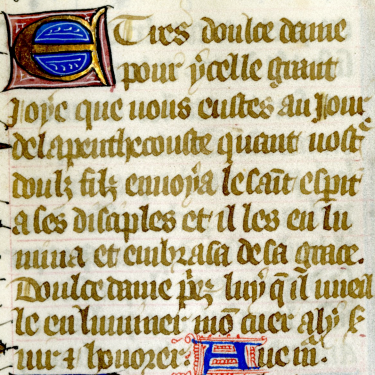 E Tres doulce dame
pour ycelle grant
Joye que uous eustes au Jour
delapenthecouste quant uost᷒
doulz filz enuoya le saīt espit
a ses disciples et il les enlu
mina et embrasa desa grace.
Doulce dame p̄ez luy q̄ il uueil
le enluminer mō cuer aly s̄
uir ⁊ honorer. Aue m̄.